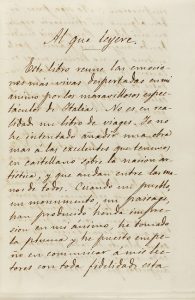 Al que leyere.
Este libro reune las emocio-
nes más vivas despertadas en mi
ánimo por los maravillosos espec-
táculos de Italia. No es en rea-
lidad un libro de viages. No
he intentado añadir una obra
mas á las excelentes que tenemos
en castellano sobre la nacion ar-
tística, y que andan entre las ma-
nos de todos. Cuando un pueblo,
un monumento, un passage
han producido honda impre-
sion en mi ánimo, he tomado
la pluma y he puesto empe-
ño en comunicar á mis lec-
tores con toda fidelidad esta